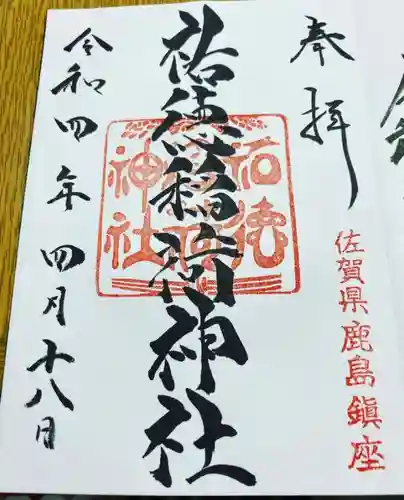 奉拝
佐賀県鹿島鎮座
祐徳稲荷神社
祐徳
稲荷
神社
令和四年四月十八日